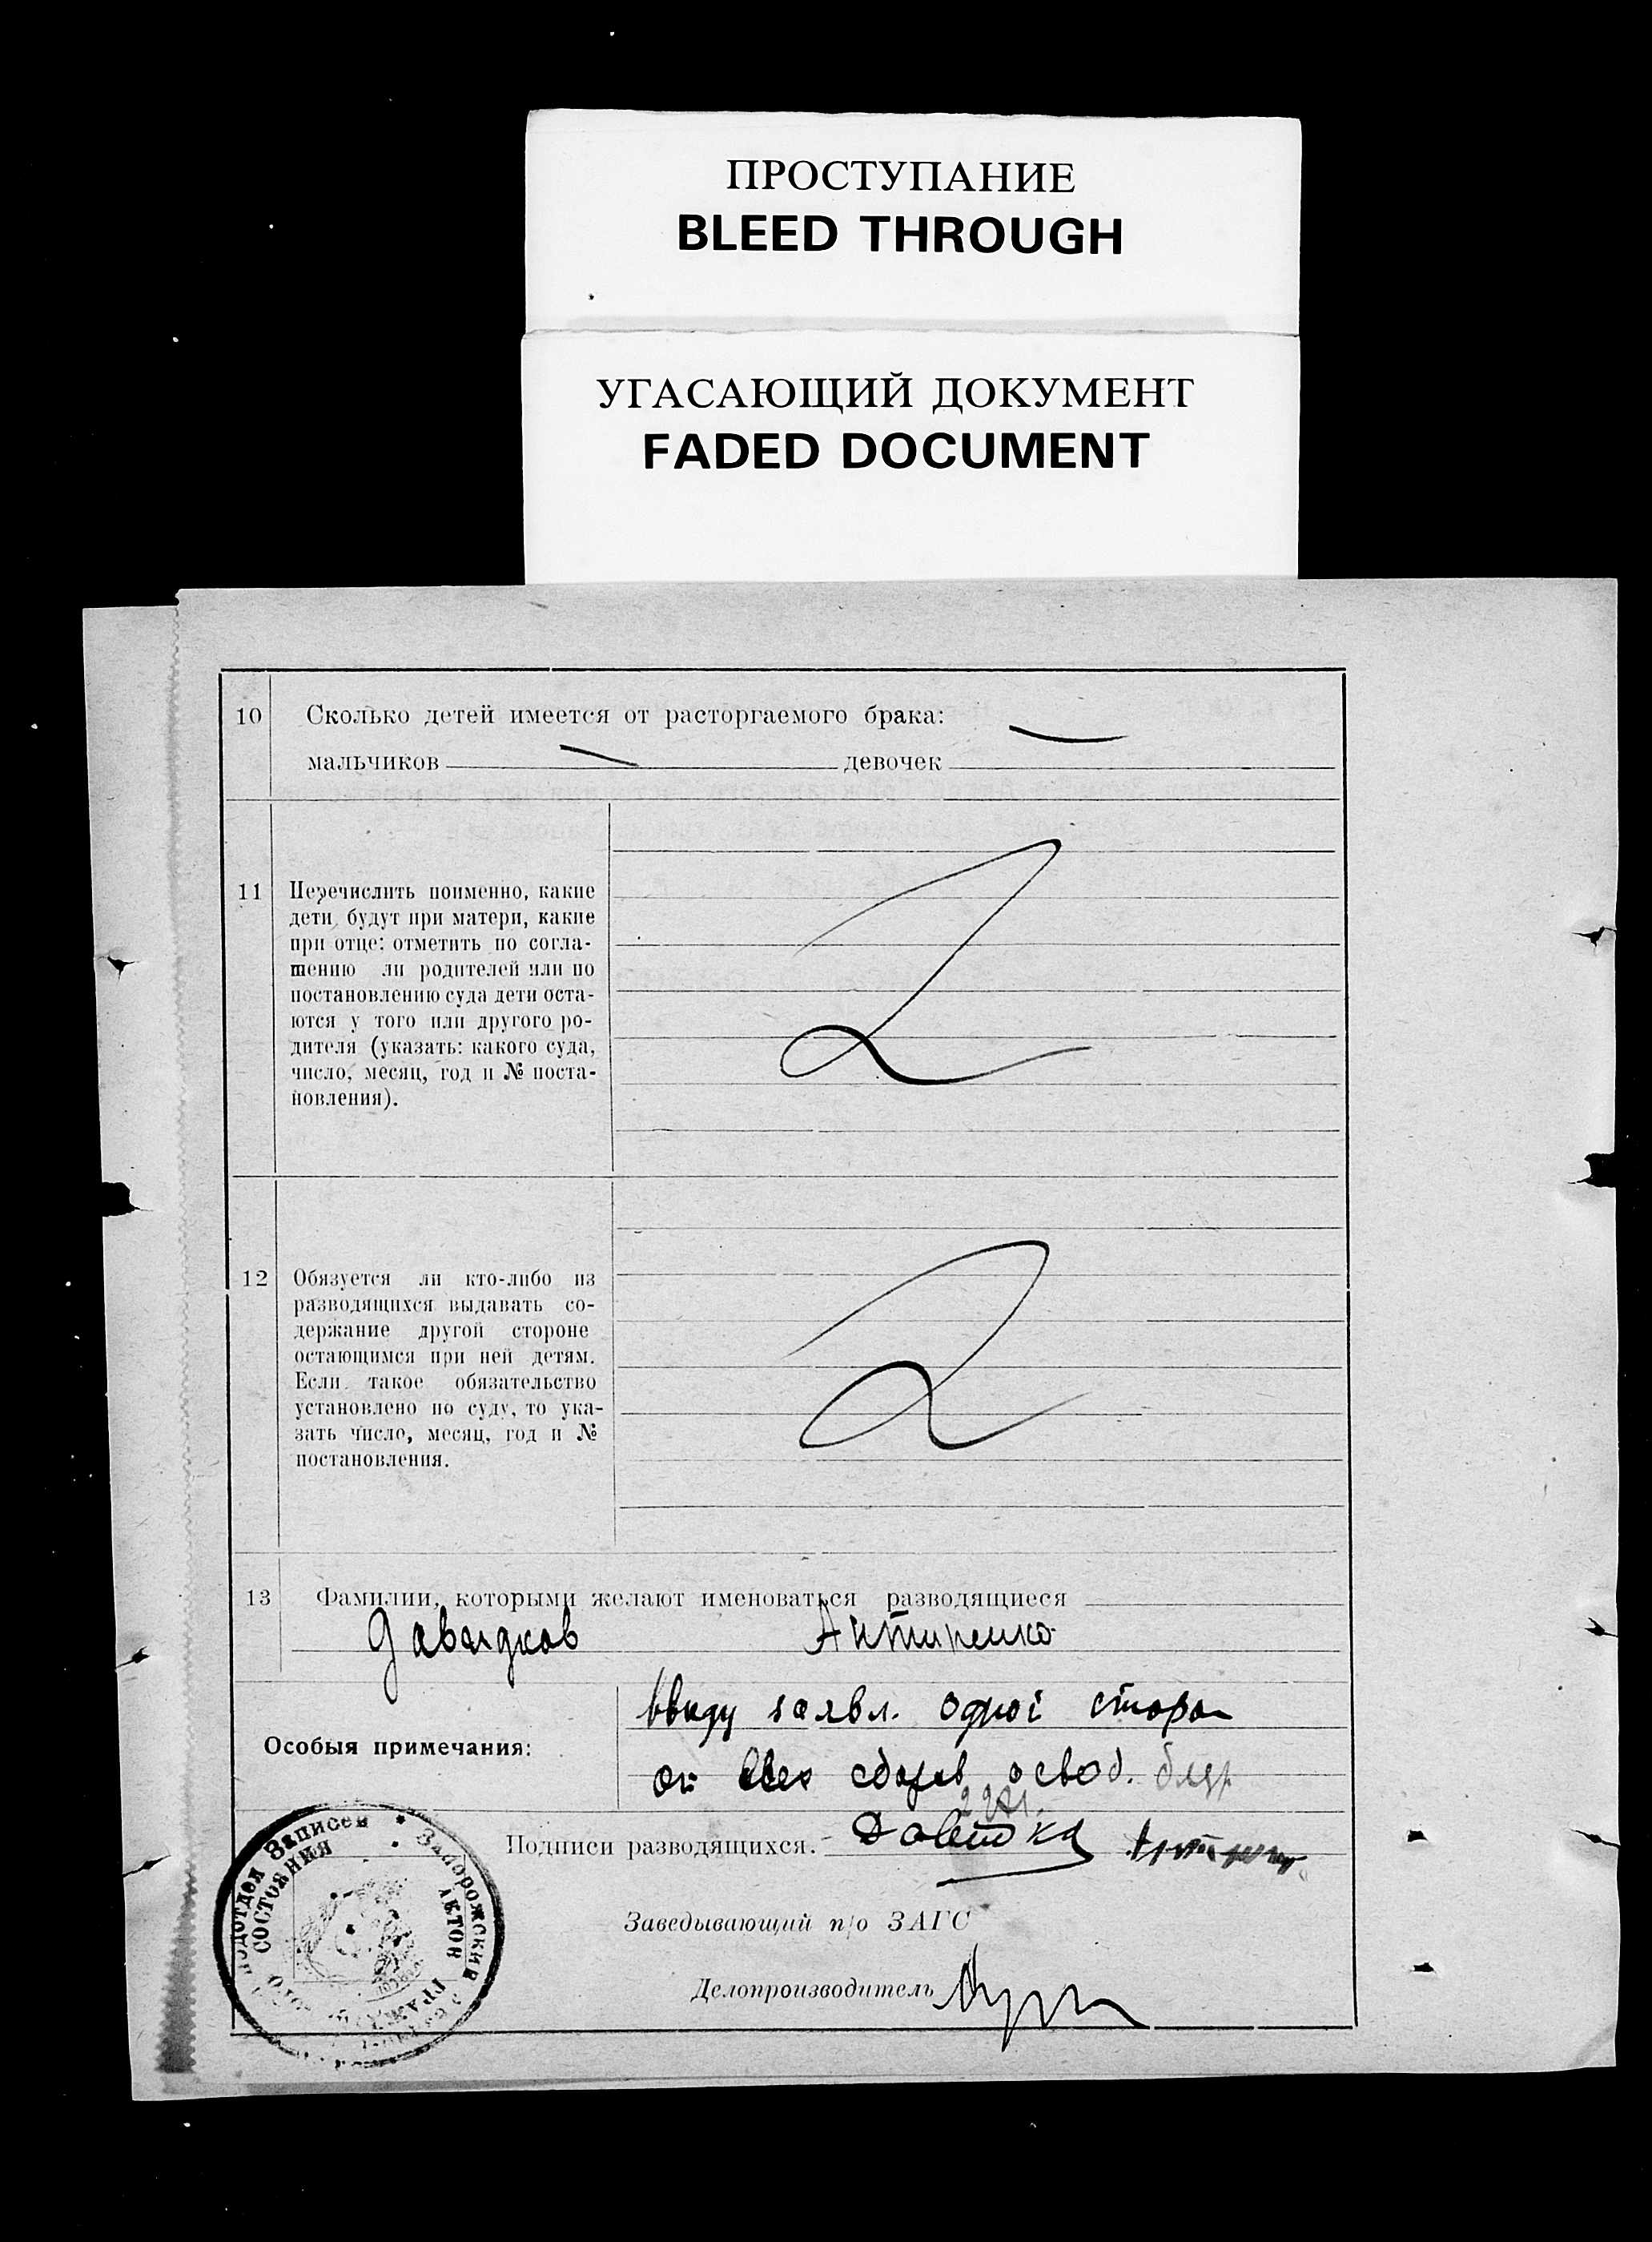 ПРОСТУПАНИЕ
BLEED THROUGH
УГАСАЮЩИЙ ДОКУМЕНТ
FADED DOCUMENT
10 Сколько детей имеется от расторгаемого брака:
мальчиков девочек
11 Перечислить поименно, какие
дети будут при матери, какие
при отце: отметить по согла-
шению ли родителей или по
постановлению суда дети оста-
ются у того или другого ро-
дителя (указать: какого суда,
число, месяц, год и № поста-
новления).
12 Обязуется ли кто-либо из
разводящихся выдавать со-
держание другой стороне
остающимся при ней детям.
Если такое обязательство
установлено по суду, то ука-
зать число, месяц, год и №
постановления.
13 Фамилии, которыми желают именоваться разводящиеся
Давидков
Ввиду заявл. одной сторон
Особыя примечания:
от всех сборов освоб.
Подписи разводящихся.
Заведывающий п/о ЗАГС
Делопроизводитель
Подотдел Записей Запорожский
АКТОВ СОСТОЯНИЯ